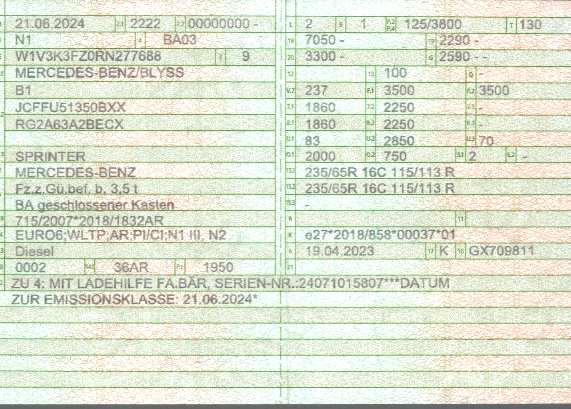 21.06.2024 2222 00000000 - 2 1 125/3800 130
N1 BA03 7050 - 2290 -
W1V3K3FZ0RN277688 9 3300 - 2590 - -
MERCEDES-BENZ/BLYSS 100 -
B1 237 3500 3500
JCFFU51350BXX 1860 2250 -
RG2A63A2BECX 1860 2250 -
83 2850 70
SPRINTER 2000 750 2 -
MERCEDES-BENZ 235/65R 16C 115/113 R
Fz.z.Gü.bef. b. 3,5 t 235/65R 16C 115/113 R
BA geschlossener Kasten -
715/2007*2018/1832AR
EURO6;WLTP;AR;PI/CI;N1 III, N2 e27*2018/858*00037*01
Diesel 19.04.2023 K GX709811
0002 36AR 1950
ZU 4: MIT LADEHILFE FA.BÄR, SERIEN-NR.:24071015807***DATUM
ZUR EMISSIONSKLASSE: 21.06.2024*